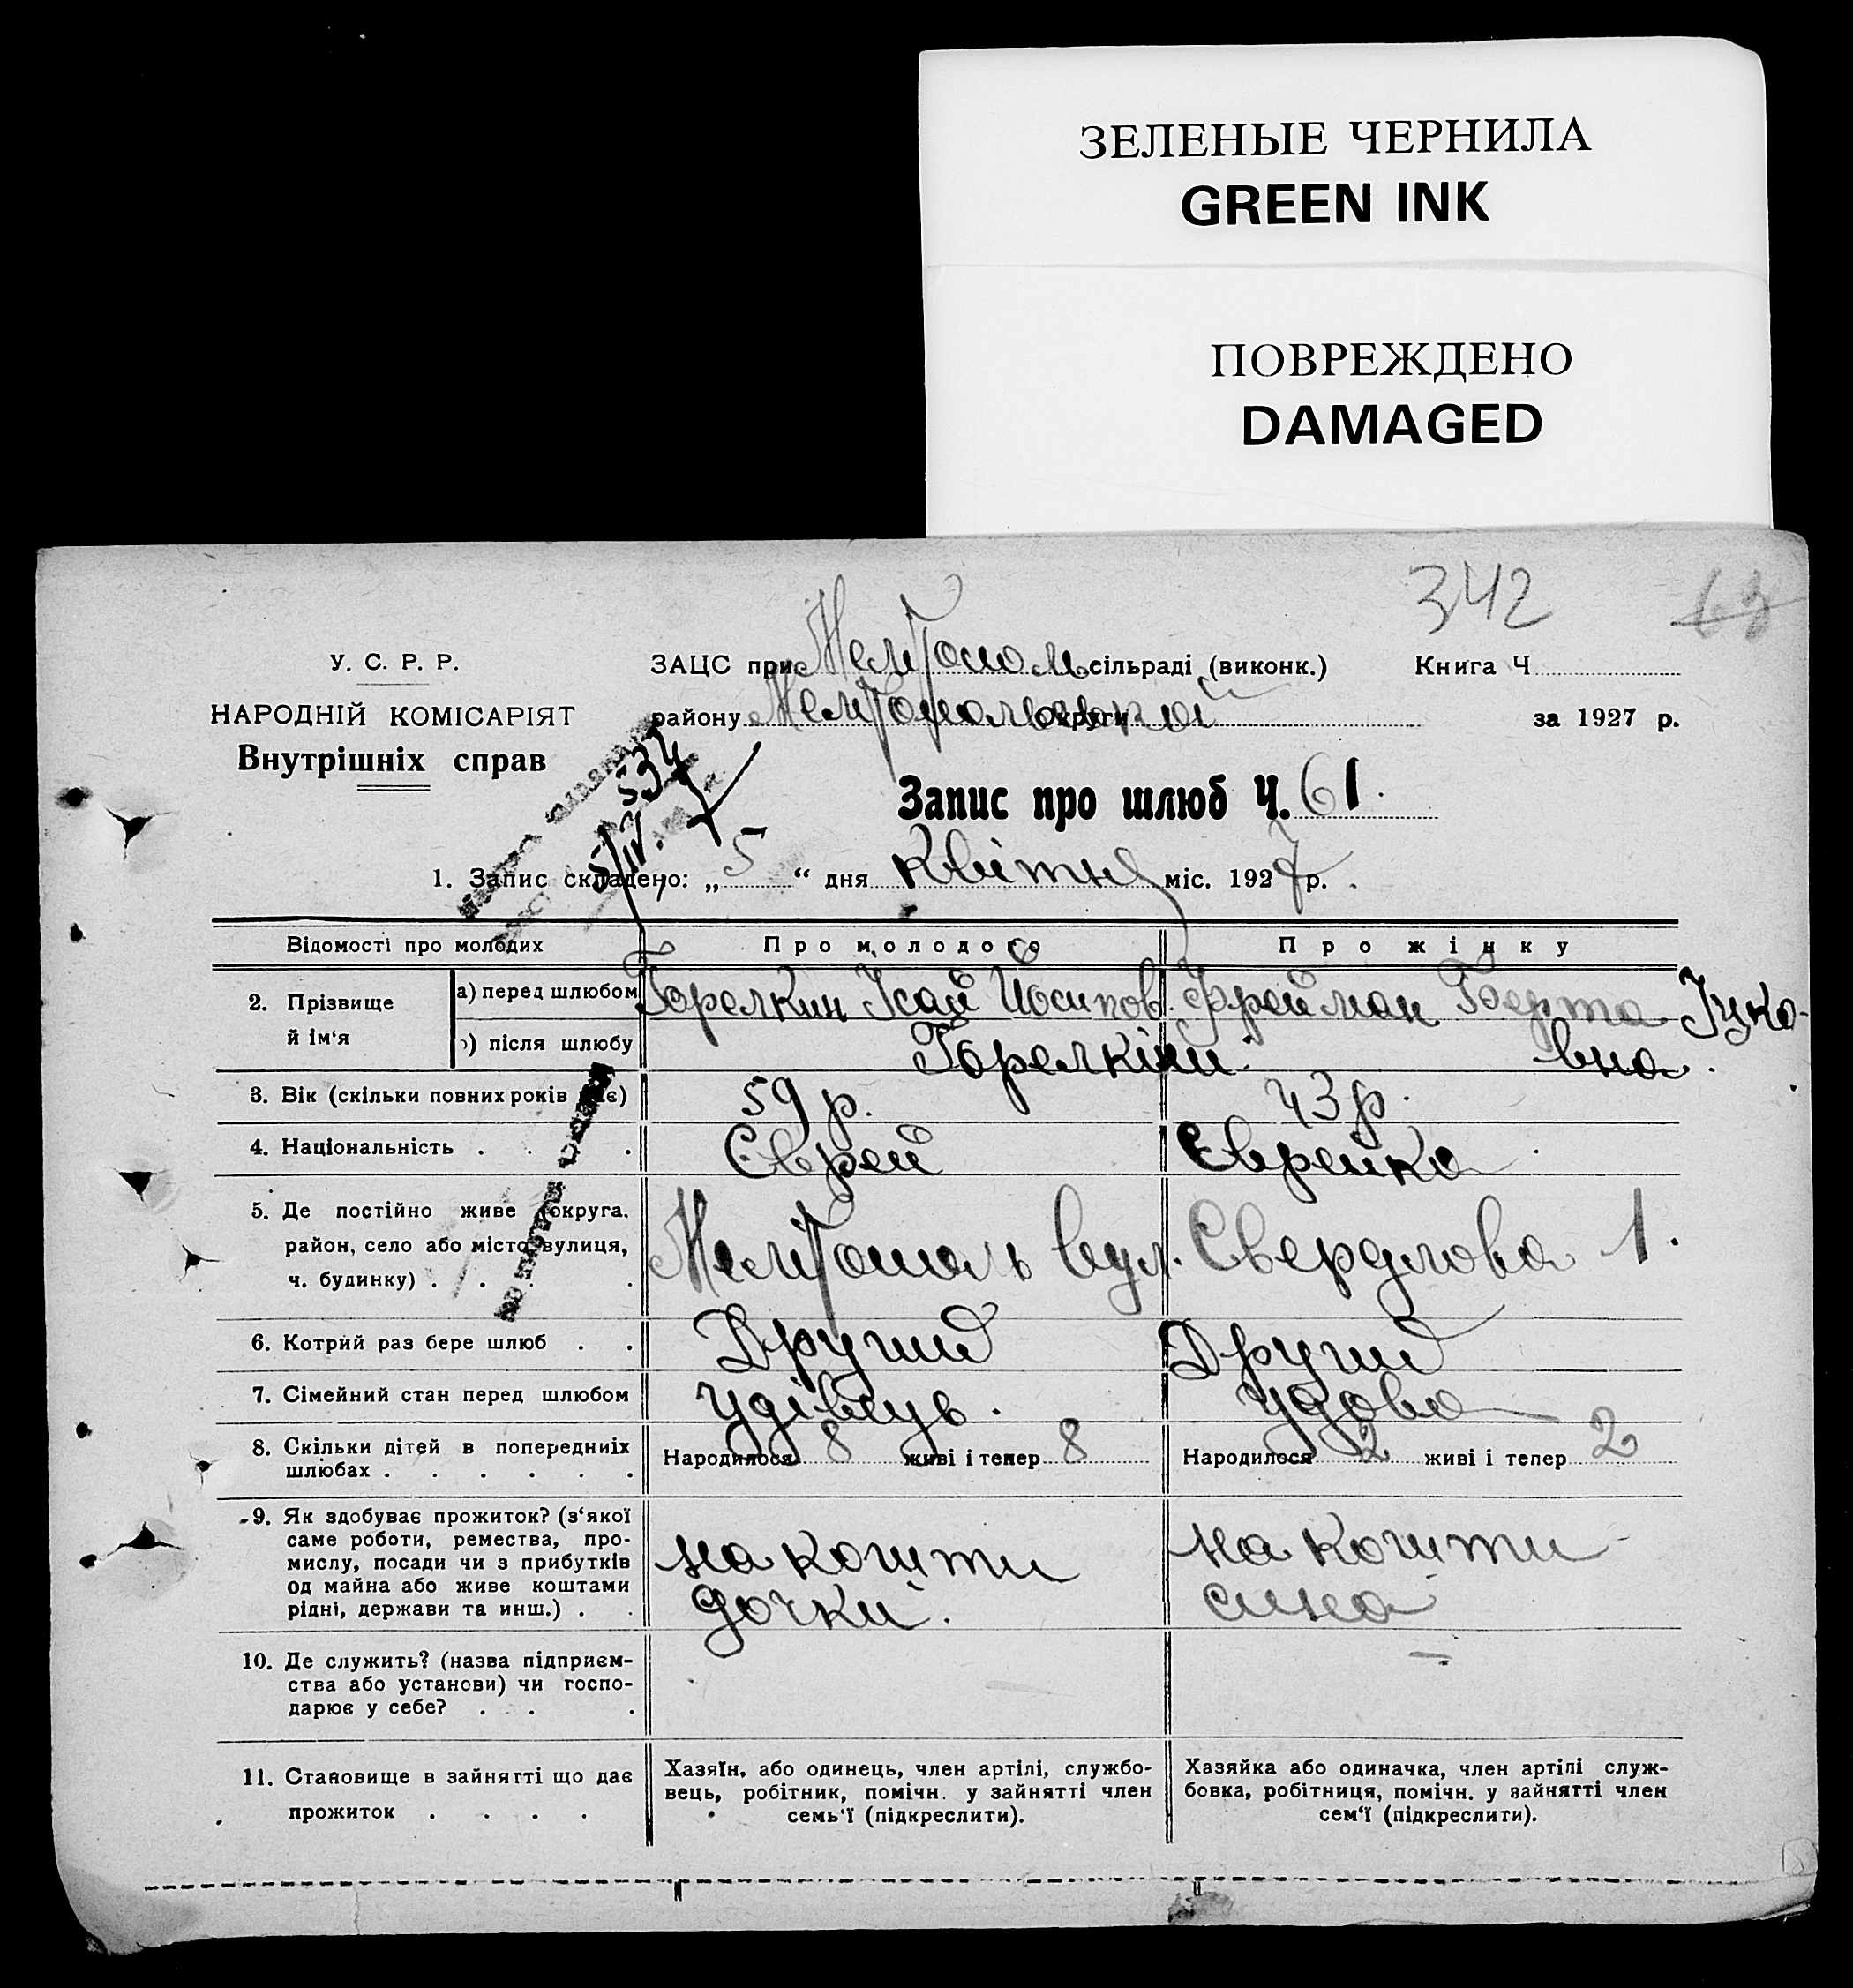 ЗЕЛЕНЫЕ ЧЕРНИЛА
GREEN INK
ПОВРЕЖДЕНО
DAMAGED
342 63
У. С. Р. Р.
НАРОДНІЙ КОМІСАРІЯТ
Внутрішніх справ
ЗАЦС при Мелітополь сільраді (виконк.) Книга Ч
району Мелітопольської округи за 1927 р.
534
5/IV.
Запис про шлюб Ч. 61.
1. Запис складено: „ 5 “ дня Квітня міс. 1927 р.
Відомості про молодих Про молодого Про жінку
2. Прізвище й ім‘я
а) перед шлюбом Горелкин Ісай Йосипов. Фрейман Берта Іцко-
вна.
) після шлюбу Горелкіни.
3. Вік (скільки повних років має) 59 р. 43 р.
4. Національність Єврей Єврейка
5. Де постійно живе (округа,
район, село або місто, вулиця,
ч. будинку) Мелітополь вул. Свердлова 1.
6. Котрий раз бере шлюб Другий Другий
7. Сімейний стан перед шлюбом удівець. удова
8. Скільки дітей в попередниіх
шлюбах Народилося 8 живі і тепер 8 Народилося 2 живі і тепер 2
9. Як здобуває прожиток? (з‘якої
саме роботи, ремества, про-
мислу, посади чи з прибутків
од майна або живе коштами
рідні, держави та инш.)
на кошти
дочки.
на кошти
сина
10. Де служить? (назва підприєм-
ства або установи) чи госпо-
дарює у себе?
11. Становище в зайнятті що дає
прожиток
Хазяїн, або одинець, член артілі, службо-
вець, робітник, помічн. у зайнятті член
семь‘ї (підкреслити).
Хазяйка або одиначка, член артілі служ-
бовка, робітниця, помічн. у зайнятті член
сем‘ї (підкреслити).